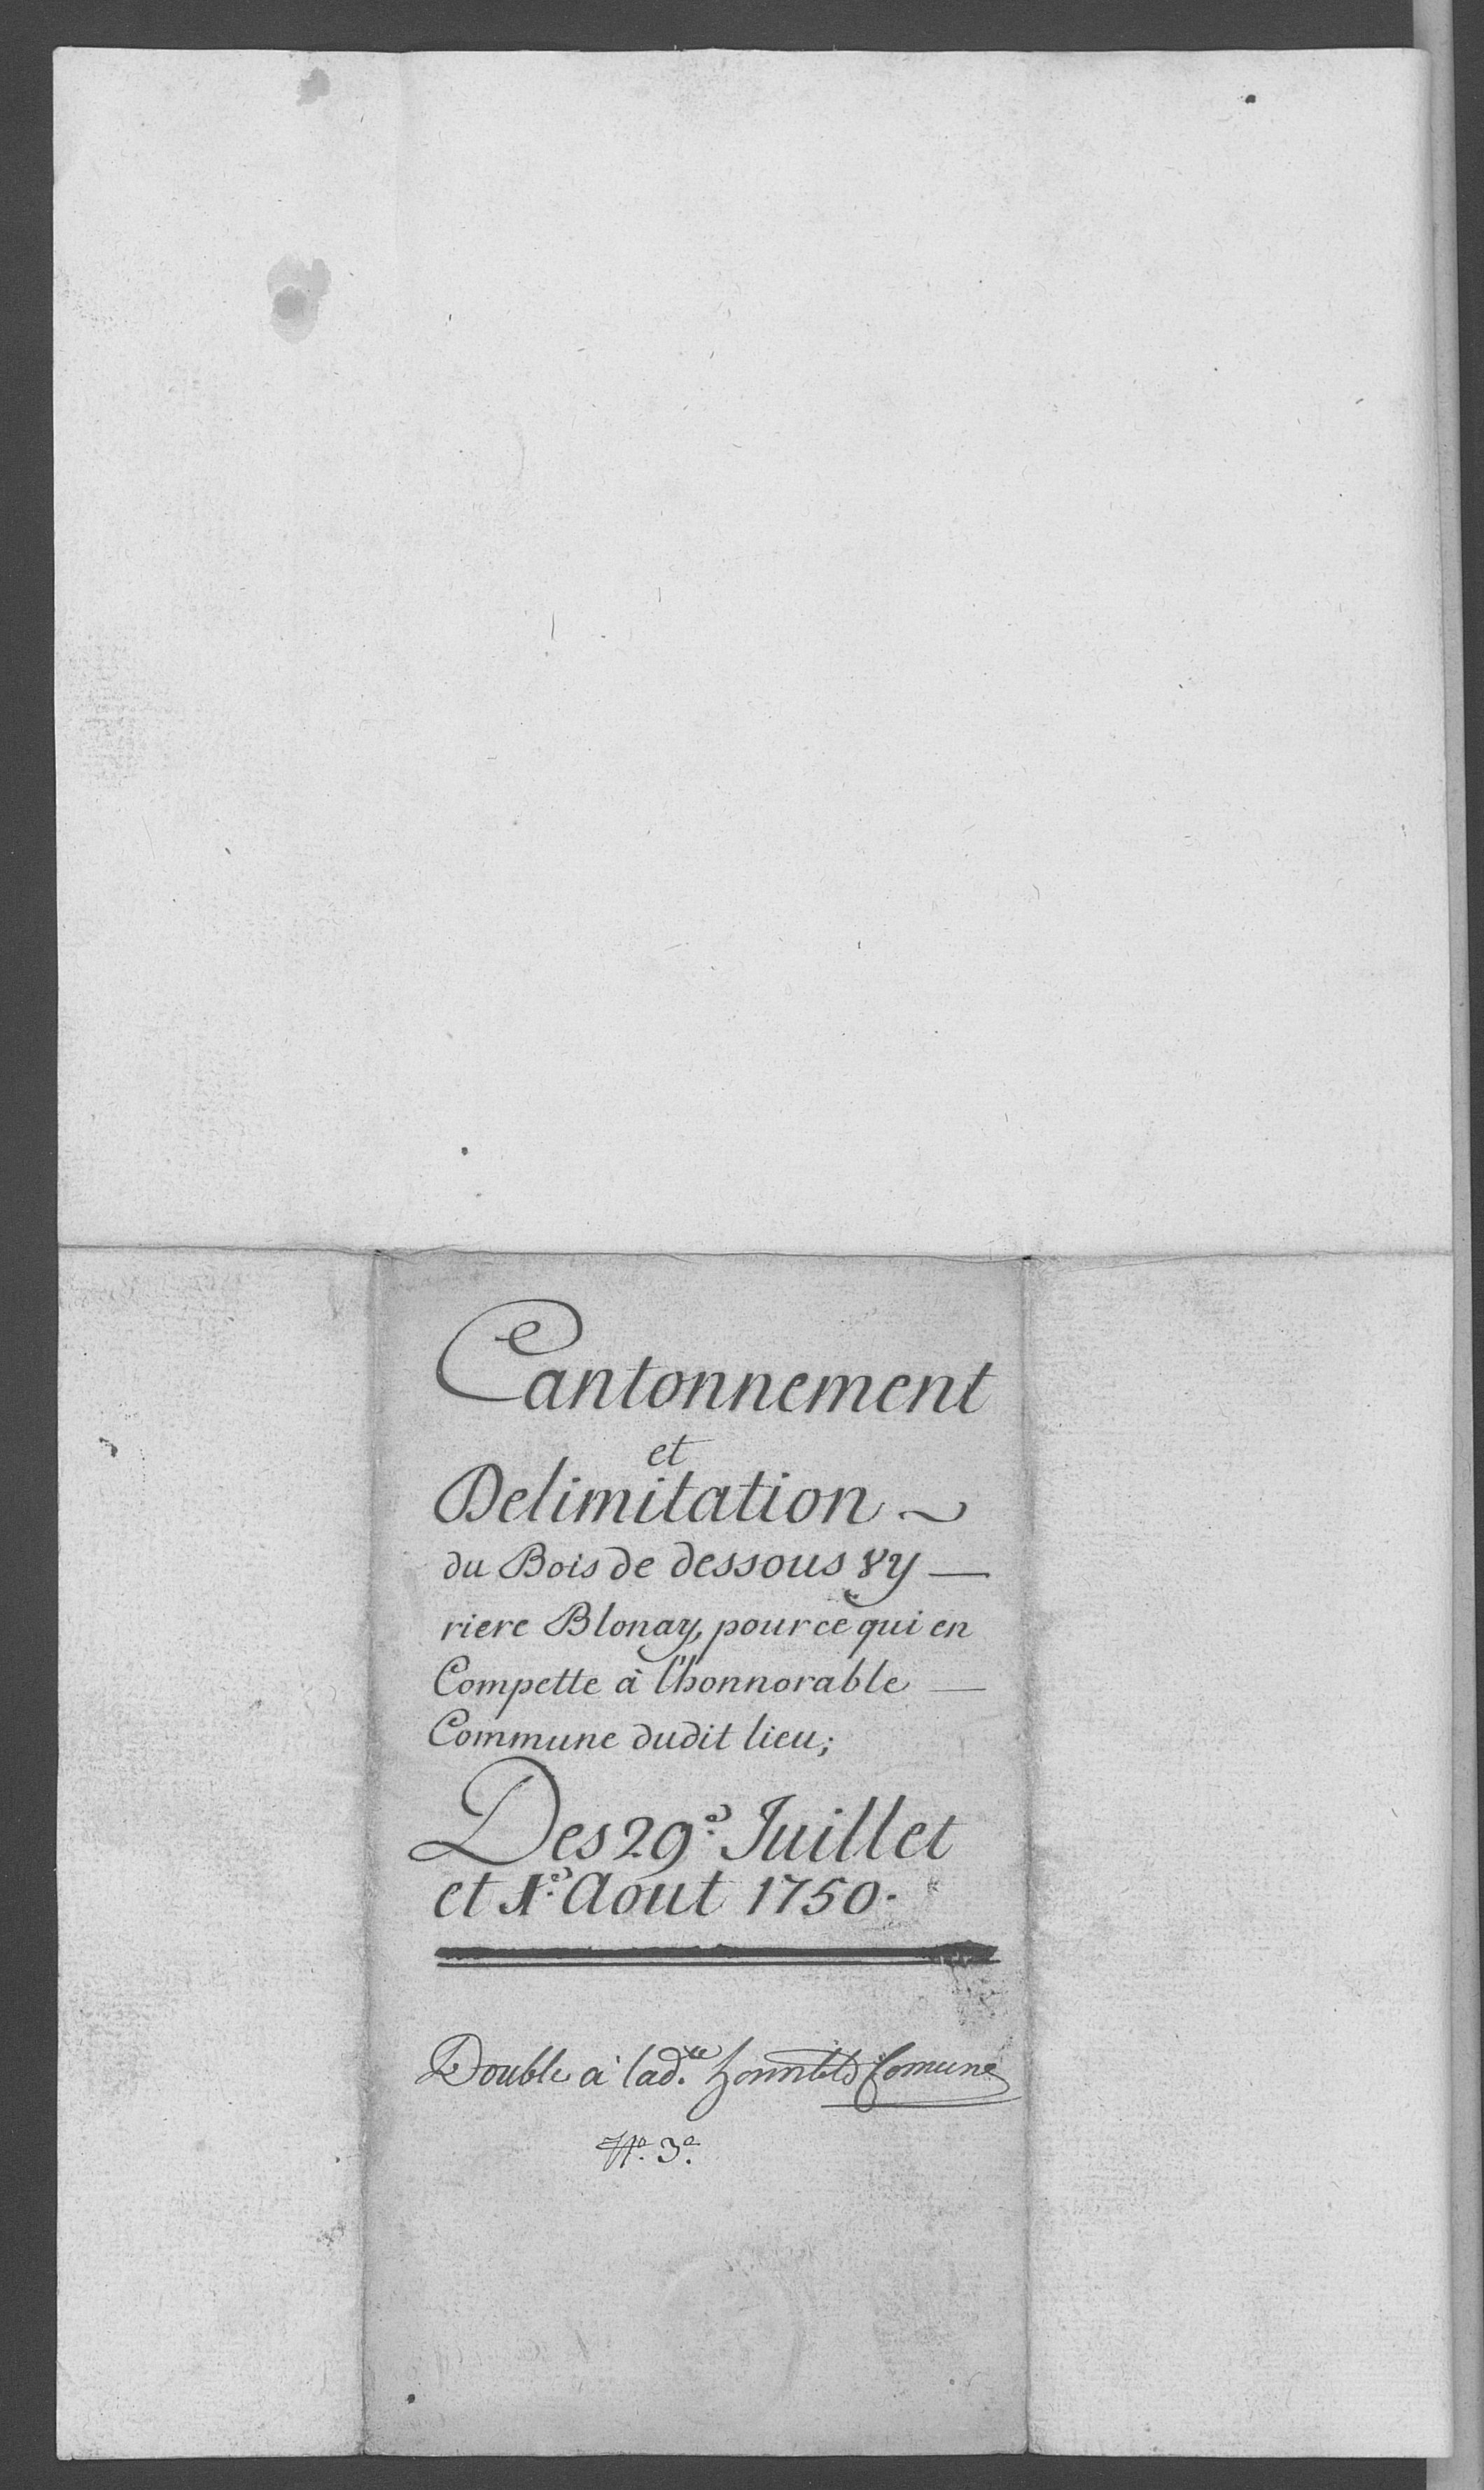 Cantonnement
et
Delimitation ~
du Bois de dessous Vy —
riere Blonay, pour ce qui en
Compette à l'honnorable —
Commune dudit lieu;
Des 29e. Juillet
et 1e. Aout 1750.
Double à lad.te honnble Comune
No. 3e.